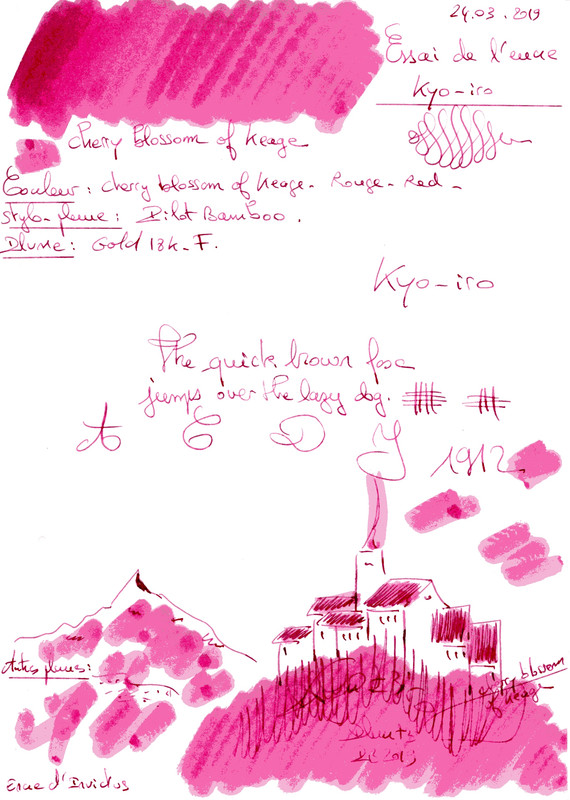 24.03.2019
Essai de l'encre
Kyo-iro
cherry blossom of Keage
Couleur : cherry blossom of Keage - Rouge - Red -
stylo-plume : Pilot Bamboo .
Plume : Gold 18k - F.
Kyo-iro
The quick brown fox
jumps over the lazy dog.
A E D J 1912
Autres plumes :
cherry blossom
of Keage
2019